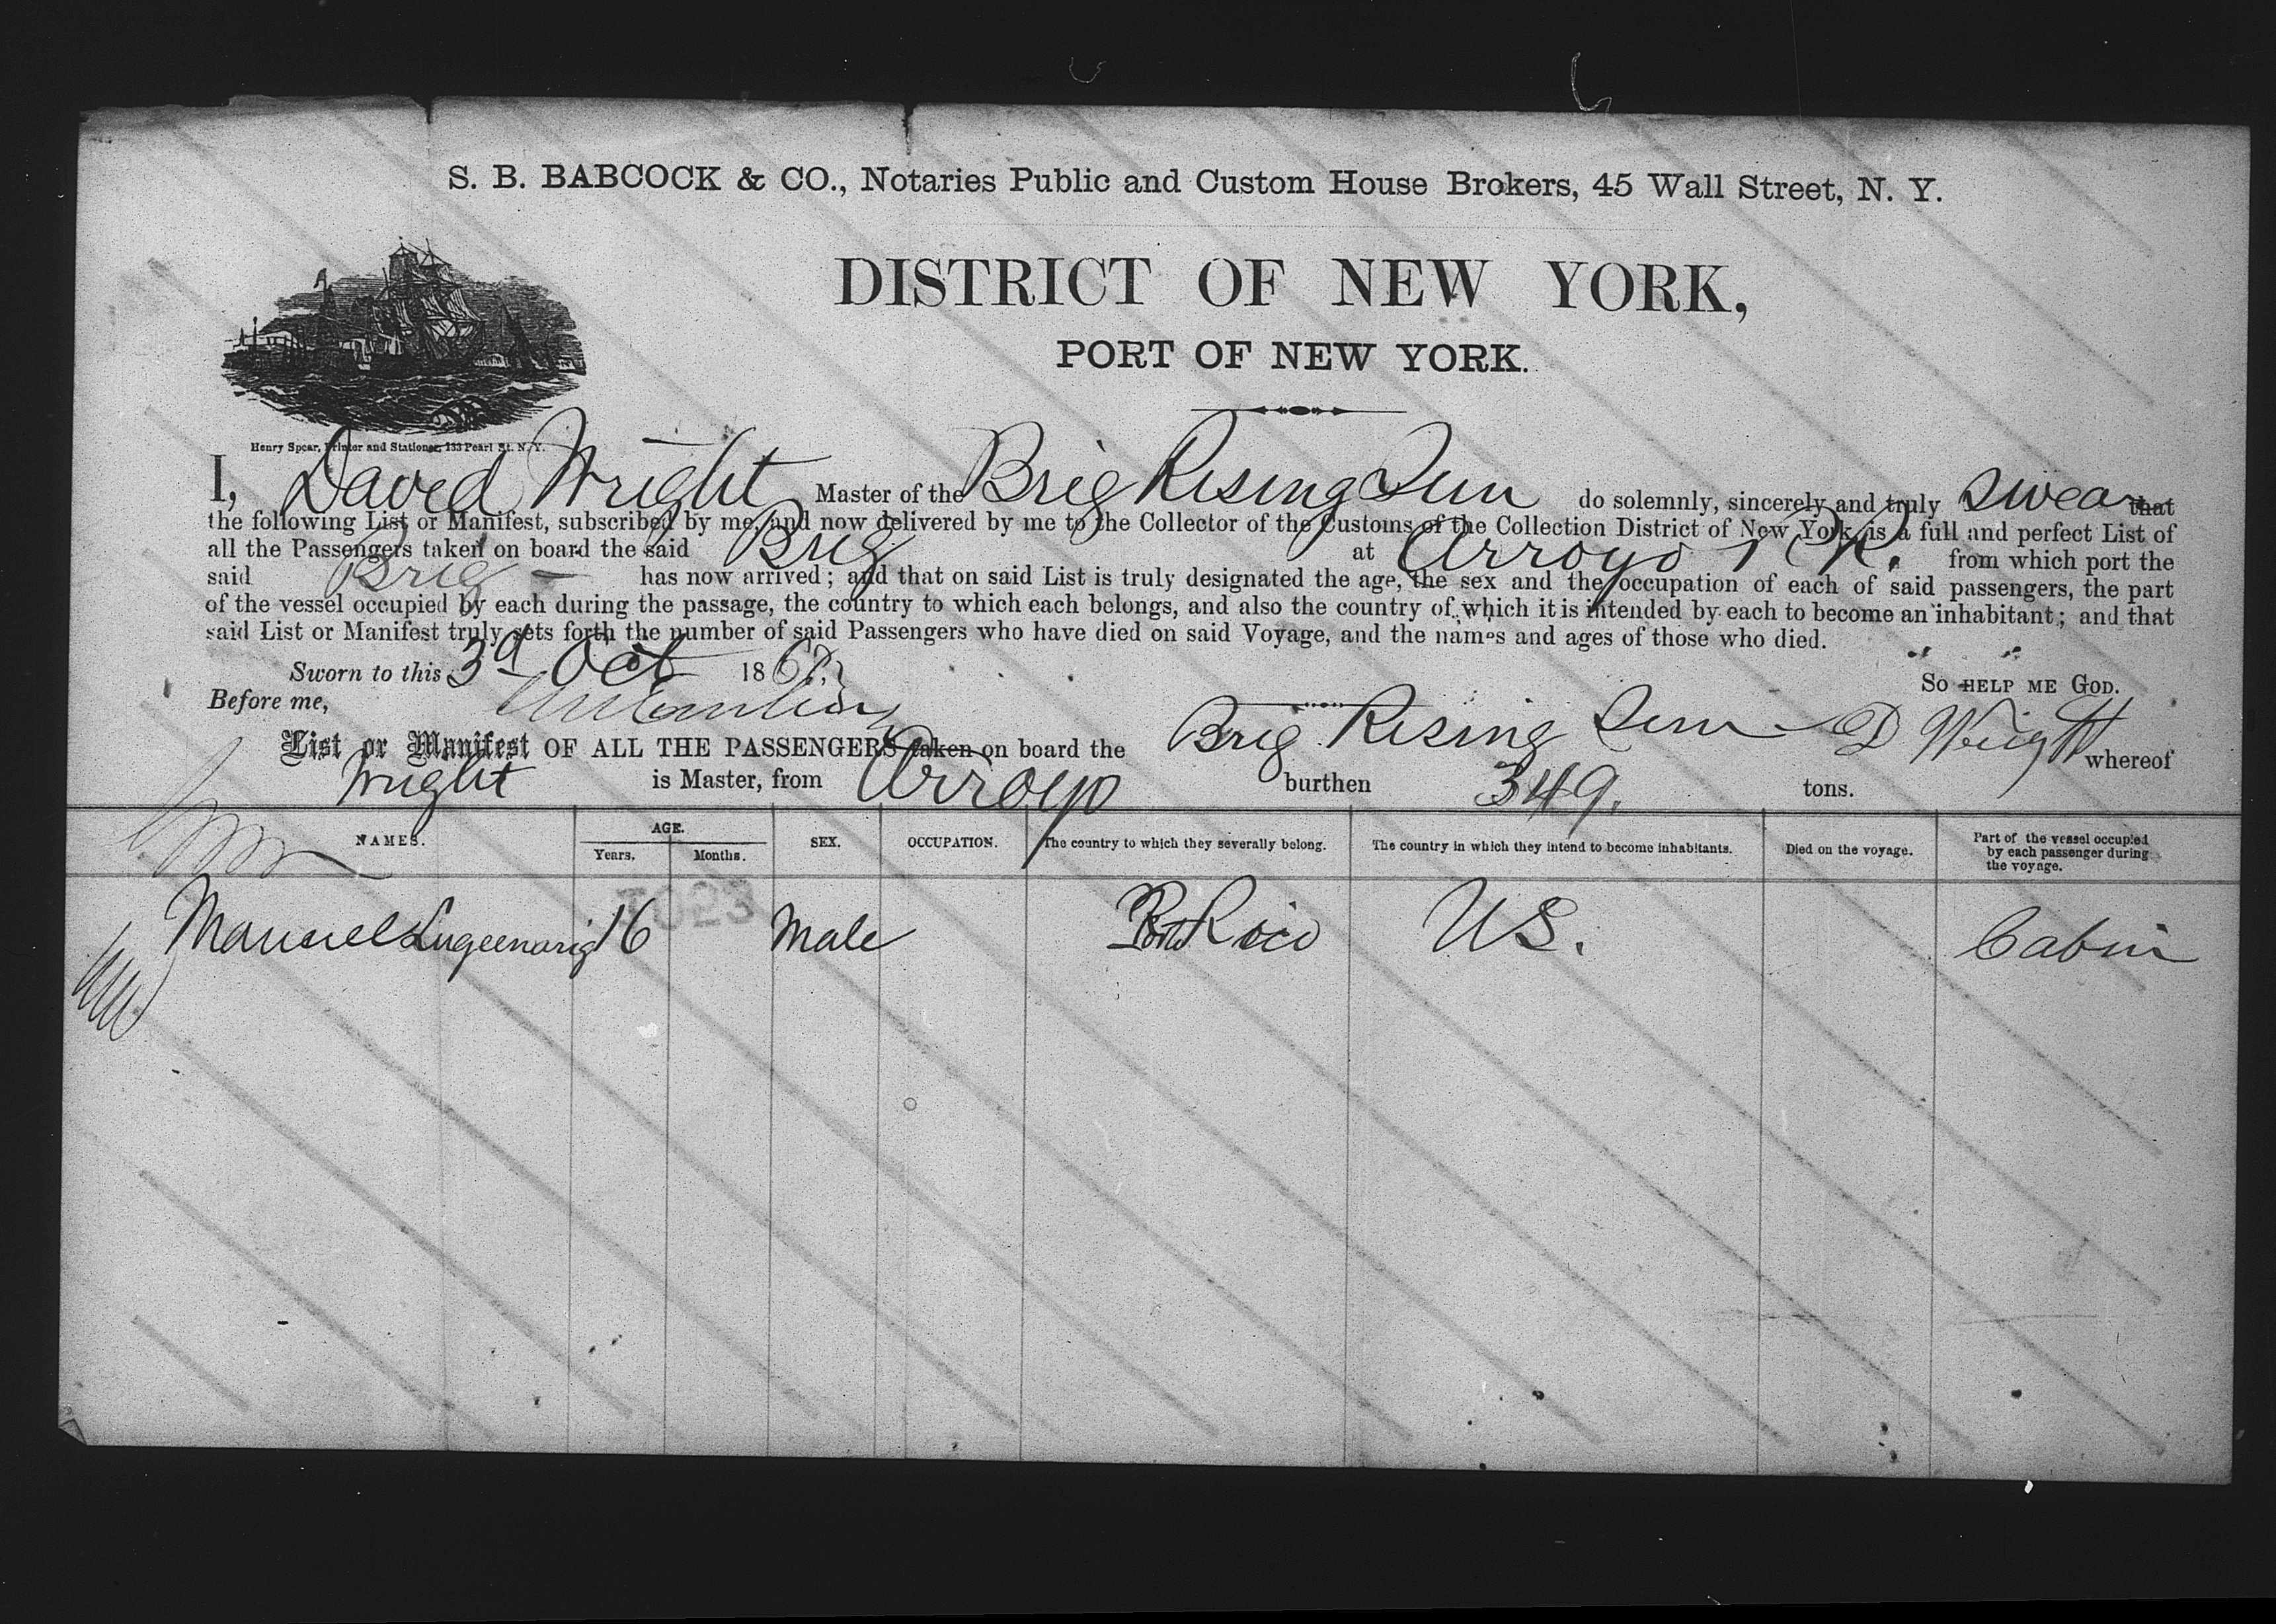 S. B. BABCOCK & CO., Notaries Public and Custom House Brokers, 45 Wall Street, N. Y.
DISTRICT OF NEW YORK,
PORT OF NEW YORK.
Henry Spear, Printer and Stationer, 133 Pearl St. N. Y.
I, David Wright Master of the Brig Rising Sun do solemnly, sincerely and truly swear that
the following List or Manifest, subscribed by me, and now delivered by me to the Collector of the Customs of the Collection District of New York, is a full and perfect List of
all the Passengers taken on board the said Brig at Arroyo P.R. from which port the
said Brig has now arrived; and that on said List is truly designated the age, the sex and the occupation of each of said passengers, the part
of the vessel occupied by each during the passage, the country to which each belongs, and also the country of which it is intended by each to become an inhabitant; and that
said List or Manifest truly sets forth the number of said Passengers who have died on said Voyage, and the names and ages of those who died.
Sworn to this 3d Oct 1867
So HELP ME GOD.
Before me,
D Wright
List or Manifest OF ALL THE PASSENGERS taken on board the Brig Rising Sun whereof
Wright is Master, from Arroyo burthen 349. tons.
NAMES. AGE. Years. Months. SEX. OCCUPATION. The country to which they severally belong. The country in which they intend to become inhabitants. Died on the voyage. Part of the vessel occupied by each passenger during the voyage.
Manuel 16 Male Porto Rico US. Cabin